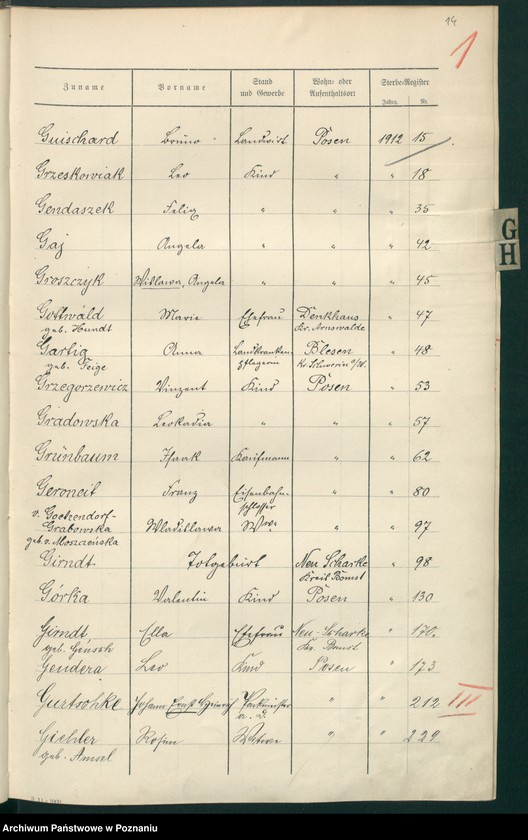 14
1
Zuname Vorname Stand und Gewerbe Wohn- oder Aufenthaltsort Sterbe-Register
Jahrg. Nr.
Guischard Bruno Landwirt Posen 1912 15
Grzeskowiak Leo Kind " " 18
Gendaszek Felix " " " 35
Gaj Angela " " " 42
Groszczyk Wisława, Angela " " " 45
Gottwald Marie Ehefrau Denkhaus " 47
geb. Hundt Kr. Arnswalde
Gartig Anna Landkranken- Blesen " 48
geb. Feige pflegerin Kr. Schwerin a/W.
Grzegorzewicz Vinzent Kind Posen " 53
Gradowska Leokadia " " " 57
Grünbaum Isaak Kaufmann " " 62
Geroneit Franz Eisenbahn- " " 80
schlosser
v. Goetzendorf-
Grabowska Wladislawa Wwe. " " 97
geb. v. Moszczeńska
Girndt Totgeburt Neu Scharke " 98
Kreis Bomst
Górka Valentin Kind Posen " 130
Girndt, Ella Ehefrau Neu-Scharke " 170
geb. Kr. Bomst
Gendera Leo Kind Posen " 173
Gurtschke Johann Ernst Heinrich " " 212 III
a. D.
Giehler Witwe " " 229
geb. Amsel
G
H
Archiwum Państwowe w Poznaniu